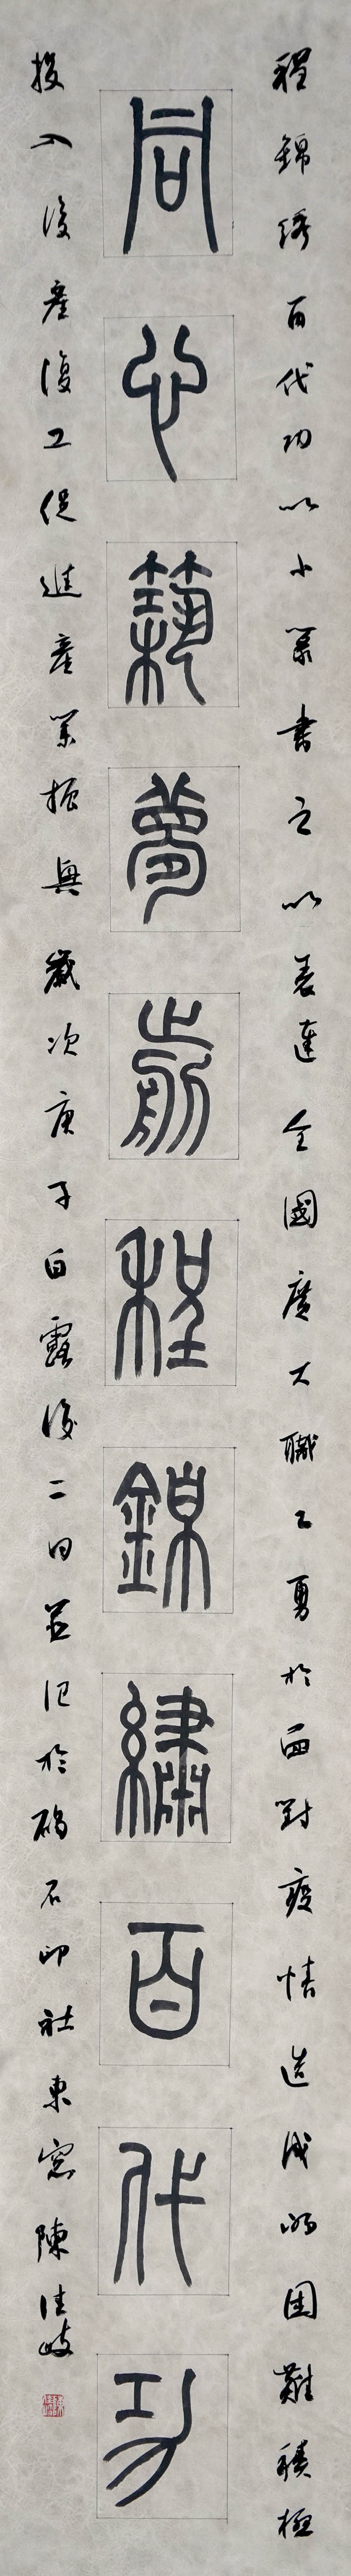 同心筑夢前程錦繡百代功
程錦綉百代功以小篆書之以表達全國廣大職工勇於面對疫情造成的困難積極
投入復產復工促進產業振興歲次庚子白露後二日並记於碣石印社東窓陳佳岐